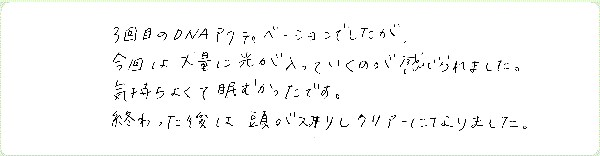 3回目のDNAアクティベーションでしたが、
今回は大量に光が入っていくのが感じられました。
気持ちよくて眠むかったです。
終わった後は頭がスッキリしクリアーになりました。